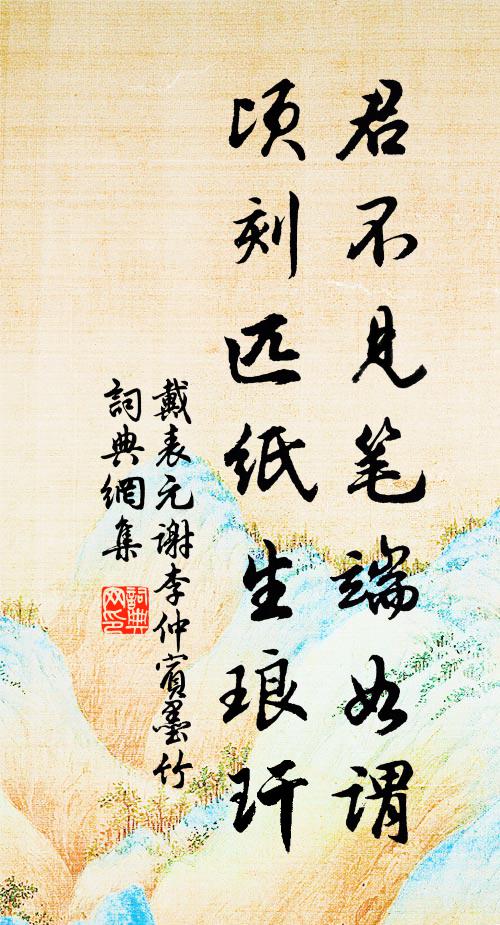 君不见笔端如谓
顷刻匹纸生琅玕
戴表元谢李仲賓墨竹
詞典網集
詞典网印